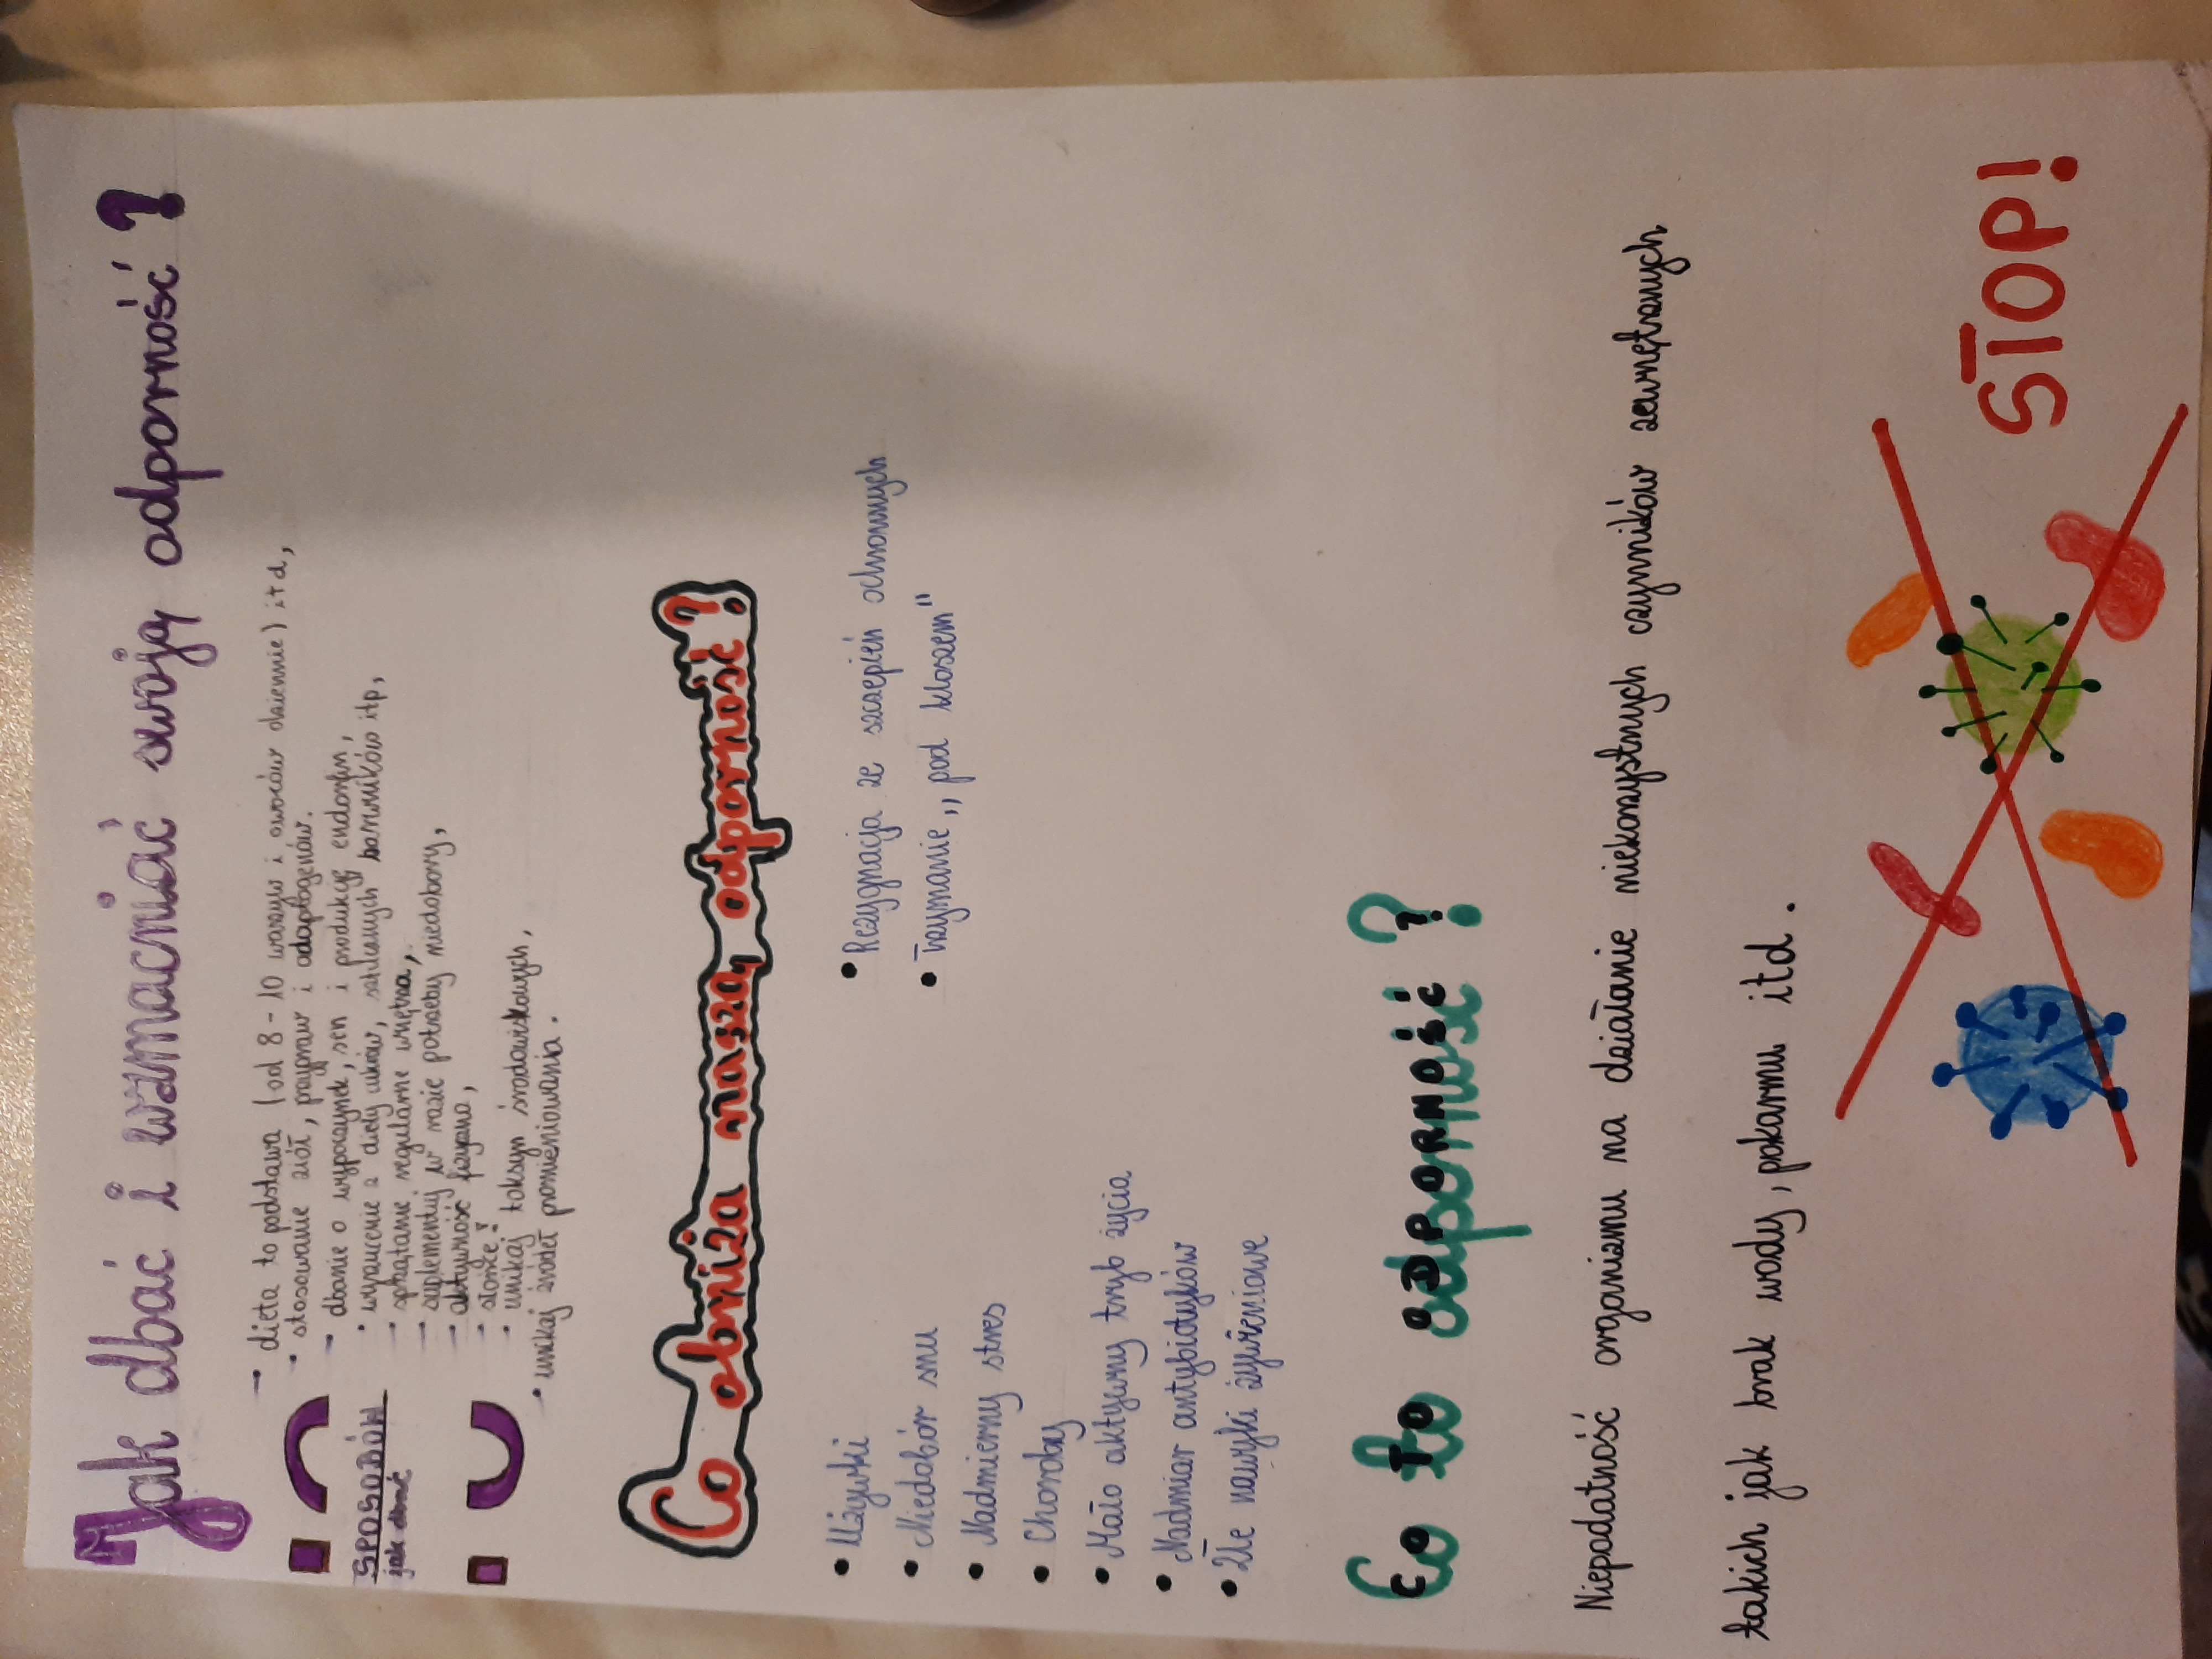 Jak dbać i wzmacniać swoją odporność?
SPOSOBÓW
jak dbać
dieta to podstawa (od 8-10 warzyw i owoców dziennie) itd,
stosowanie ziół, przypraw i adaptogenów.
dbanie o wypoczynek, sen i produkcję endorfin,
wyrzucenie z diety cukrów, sztucznych barwników itp,
sprzątanie regularne wnętrza,
suplementuj w razie potrzeby niedobory,
aktywność fizyczna,
słońce!
unikaj toksyn środowiskowych,
unikaj źródeł promieniowania.
Co obniża naszą odporność?
• Używki
• Niedobór snu
• Nadmierny stres
• Choroby
• Mało aktywny tryb życia
• Nadmiar antybiotyków
• Złe nawyki żywieniowe
• Rezygnacja ze szczepień ochronnych
• Trzymanie „pod kloszem"
Co to odporność?
Niepodatność organizmu na działanie niekorzystnych czynników zewnętrznych
takich jak brak wody, pokarmu itd.
STOP!